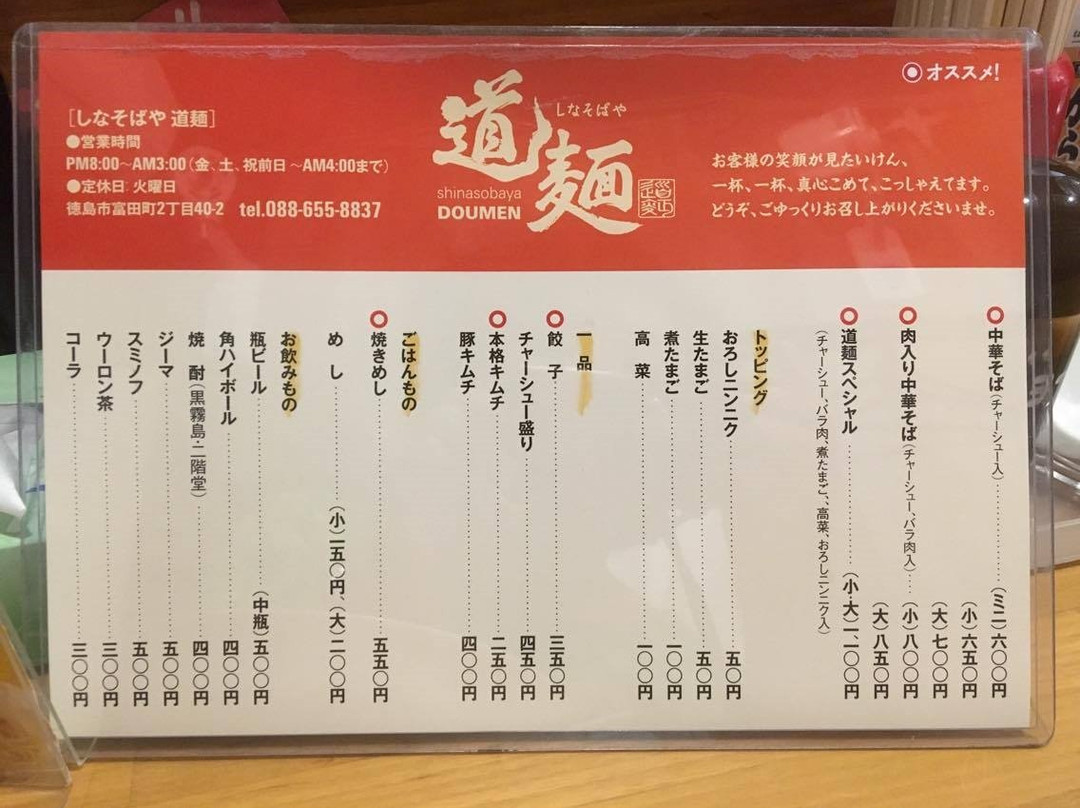 [しなそばや 道麺]
●営業時間
PM8:00～AM3:00(金、土、祝前日～AM4:00まで)
●定休日:火曜日
徳島市富田町2丁目40-2 tel.088-655-8837
道麺
しなそばや
shinasobaya
DOUMEN
オススメ!
お客様の笑顔が見たいけん、
一杯、一杯、真心こめて、こっしゃえてます。
どうぞ、ごゆっくりお召し上がりくださいませ。
中華そば(チャーシュー入)(ミニ)六〇〇円
(小)六五〇円
(大)七〇〇円
肉入り中華そば(チャーシュー、バラ肉入)(小)八〇〇円
(大)八五〇円
道麺スペシャル(小・大)一、一〇〇円
(チャーシュー、バラ肉、煮たまご、高菜、おろしニンニク入)
トッピング
おろしニンニク 五〇円
生たまご 五〇円
煮たまご 一〇〇円
高菜 一〇〇円
一品
餃子 三五〇円
チャーシュー盛り 四五〇円
本格キムチ 二五〇円
豚キムチ 四〇〇円
ごはんもの
焼きめし 五五〇円
めし(小)一五〇円、(大)二〇〇円
お飲みもの
瓶ビール(中瓶)五〇〇円
角ハイボール 四〇〇円
焼酎(黒霧島・二階堂) 四〇〇円
ジーマ 五〇〇円
スミノフ 五〇〇円
ウーロン茶 三〇〇円
コーラ 三〇〇円